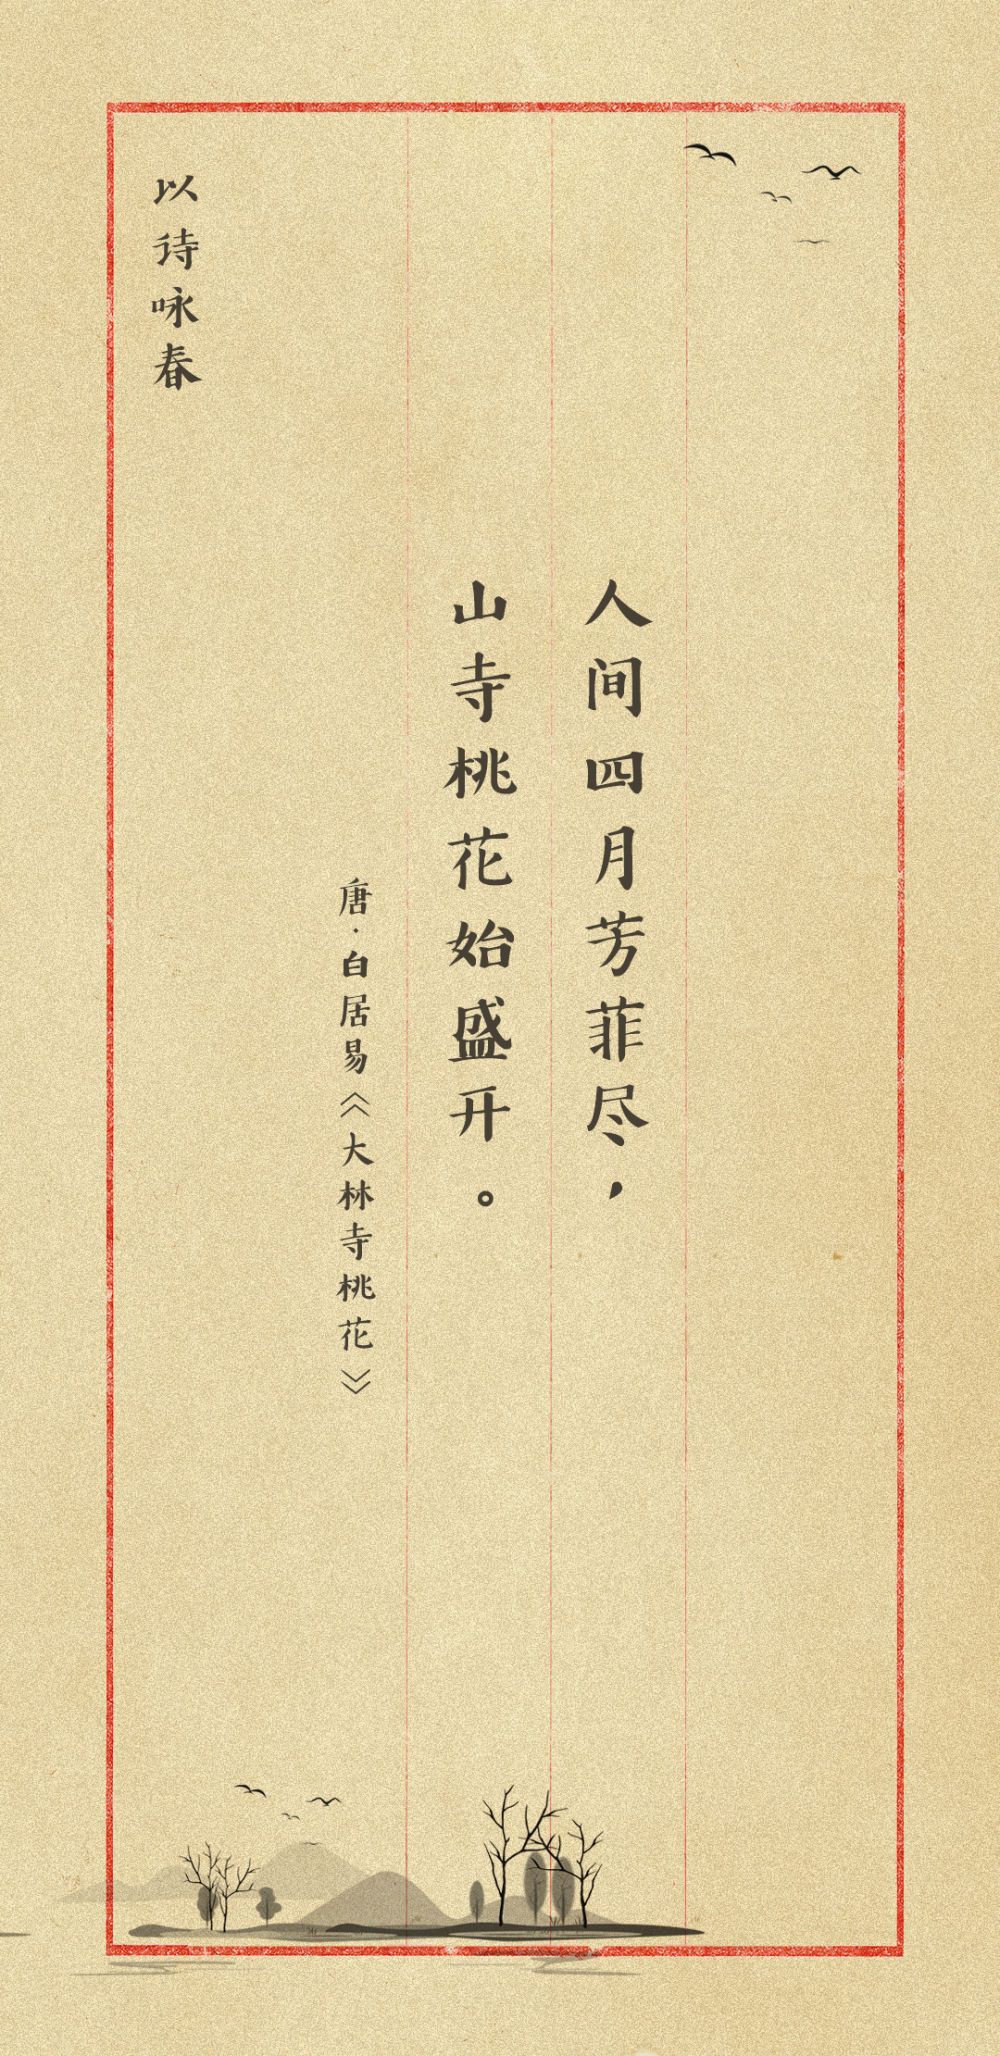 人间四月芳菲尽，
山寺桃花始盛开。
唐·白居易《大林寺桃花》
以诗咏春